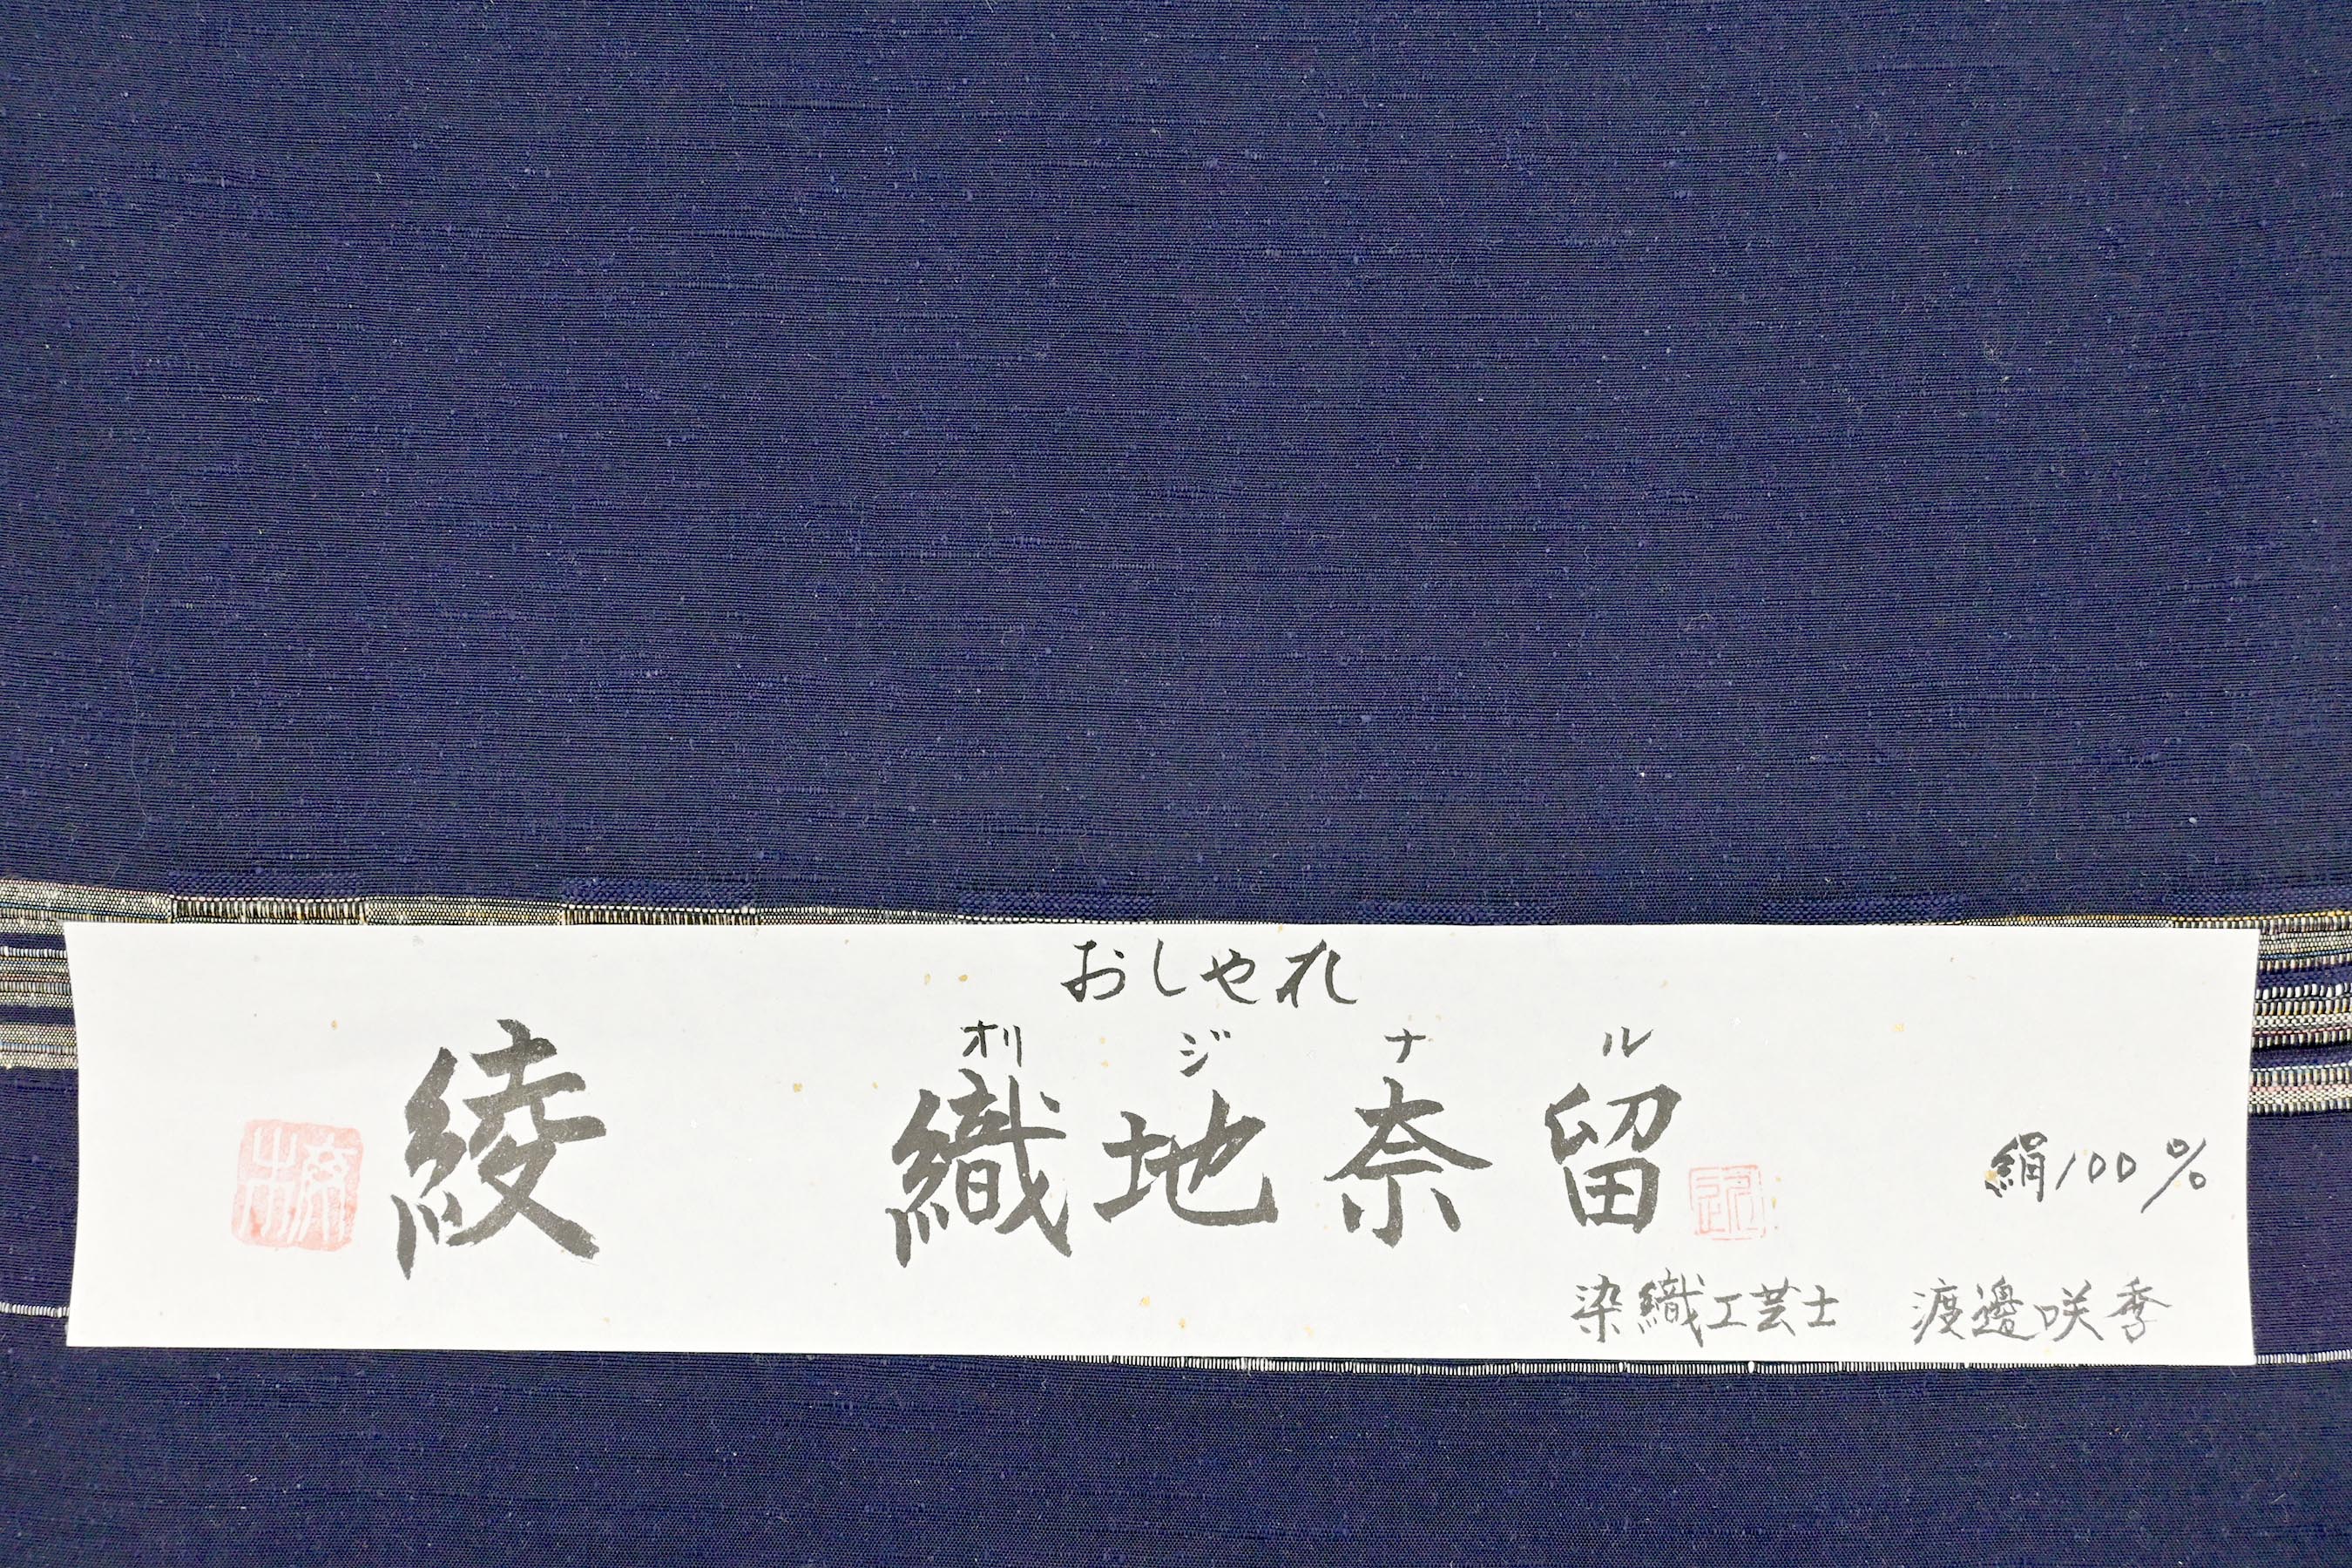 おしゃれ
オリジナル
綾 織地奈留
絹100%
染織工芸士 渡邊咲季